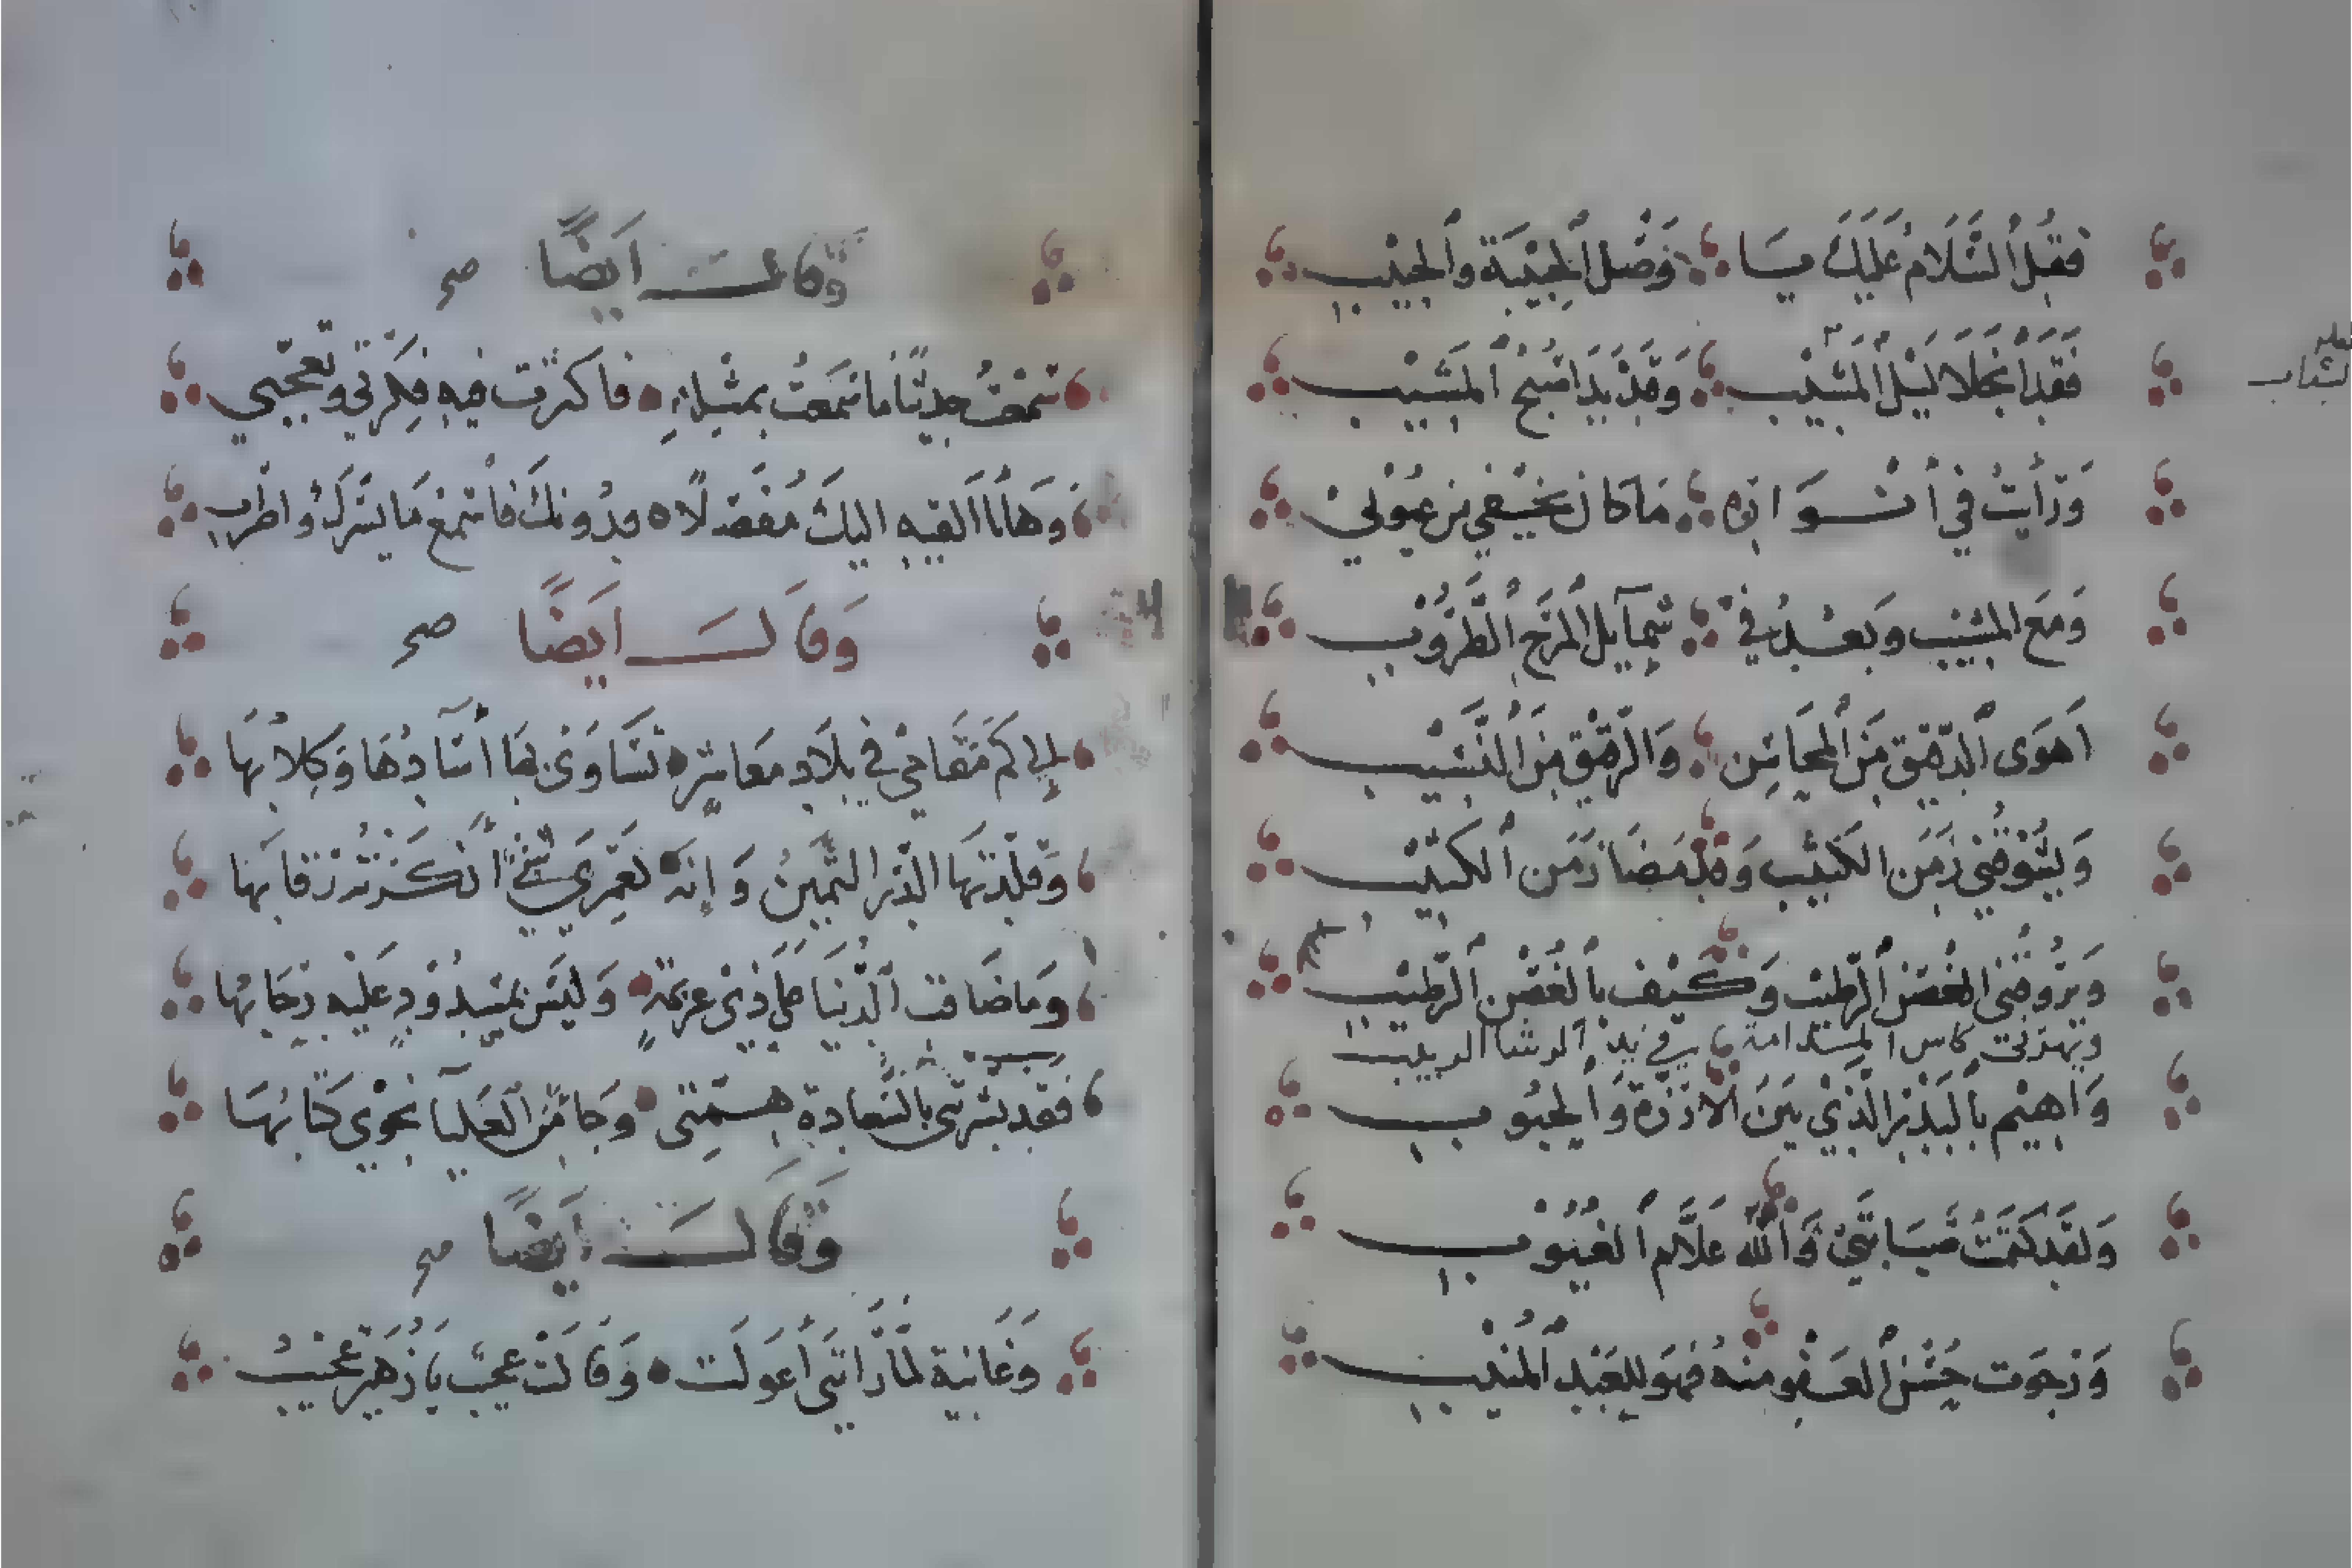 فَقُلِ السَّلَامُ عَلَيْكَ يَا وَصْلَ الْحَبِيْبَةِ وَالْحَبِيْبِ
فَقَدِ انْجَلَا لَيْلُ الْمَشِيْبِ وَقَدْ بَدَا صُبْحُ الْمَشِيْبِ
الشباب
وَرَأَيْتُ فِي أَنْــوَارِهِ مَا كَانَ يَخْفِي مِنْ عُيُوْبِيْ
وَمَعَ الْمَشِيْبِ وَبَعْدُ فِيَّ شَمَآيِلُ الْمَرِحِ الطَّرُوْبِ
اَهْوَى الدَّقِيْقَ مِنَ الْمَحَاسِنِ وَالرَّقِيْقَ مِنَ النَّسِيْبِ
وَيَشُوْقُنِي زَمَنُ الكَثِيْبِ وَقَدْ مَضَا زَمَنُ الْكَثِيْبِ
وَيَرُوْقُنِي الْغُصْنُ الرَّطِيْبُ وَكَيْفَ بِالْغُصْنِ الرَّطِيْبِ
ويهزني كاس المدامة في يد الرشا الربيب
وَاَهِيْمُ بِالْبَدْرِ الَّذِيْ بَيْنَ الْاَزِرَّةِ وَالْجُيُوْبِ
وَلَقَدْ كَتَمْتُ صَبَابَتِيْ وَاللّٰهُ عَلَّامُ الْغُيُوْبِ
وَرَجَوْتُ حُسْنَ الْعَفْوِ مِنْهُ فَهُوَ لِلْعَبْدِ الْمُنِيْبِ
وَقَالَ اَيْضًا صح
سَمِعْتُ حَدِيْثًا مَا سَمِعْتُ بِمِثْلِهِ فَاكْثَرْتَ فِيْهِ فِكْرَتِي وَتَعَجُّبِي
وَهَا اَنَا اَلْقِيهِ اِلَيْكَ مُفَصَّلًا فَدُونَكَ فَاسْمَعْ مَا يَسُرُّكَ وَاطْرَبِ
وَقَالَ اَيْضًا صح
إِلَى كَمْ مَقَامِيْ فِي بِلَادِ مَعَاشِرٍ تَسَاوَىٰ بِهَا أَسَادُهَا وَكِلَابُهَا
وَقَلَّدْتُهَا الدُّرَّ الثَّمِيْنَ وَإِنَّهُ لَعَمْرِيْ شَيْءٌ اَنْكَرَتْهُ رِقَابُهَا
وَمَا ضَاقَتِ الدُّنْيَا عَلَى ذِيْ عَزِيْمَةٍ وَلَيْسَ بِمَسْدُوْدٍ عَلَيْهِ رِحَابُهَا
فَقَدْ بَشَّرَتْنِي بِالسَّعَادَةِ هِمَّتِي وَجَا مِنَ الْعَلْيَآ نَحْوِيْ كِتَابُهَا
وَقَالَ اَيْضًا صح
وَغَانِيَةٍ لَمَّا رَأَتْنِي أَعْوَلَتْ وَقَالَتْ عَجِيْبٌ يَا زُهَيْرُ عَجِيْبُ